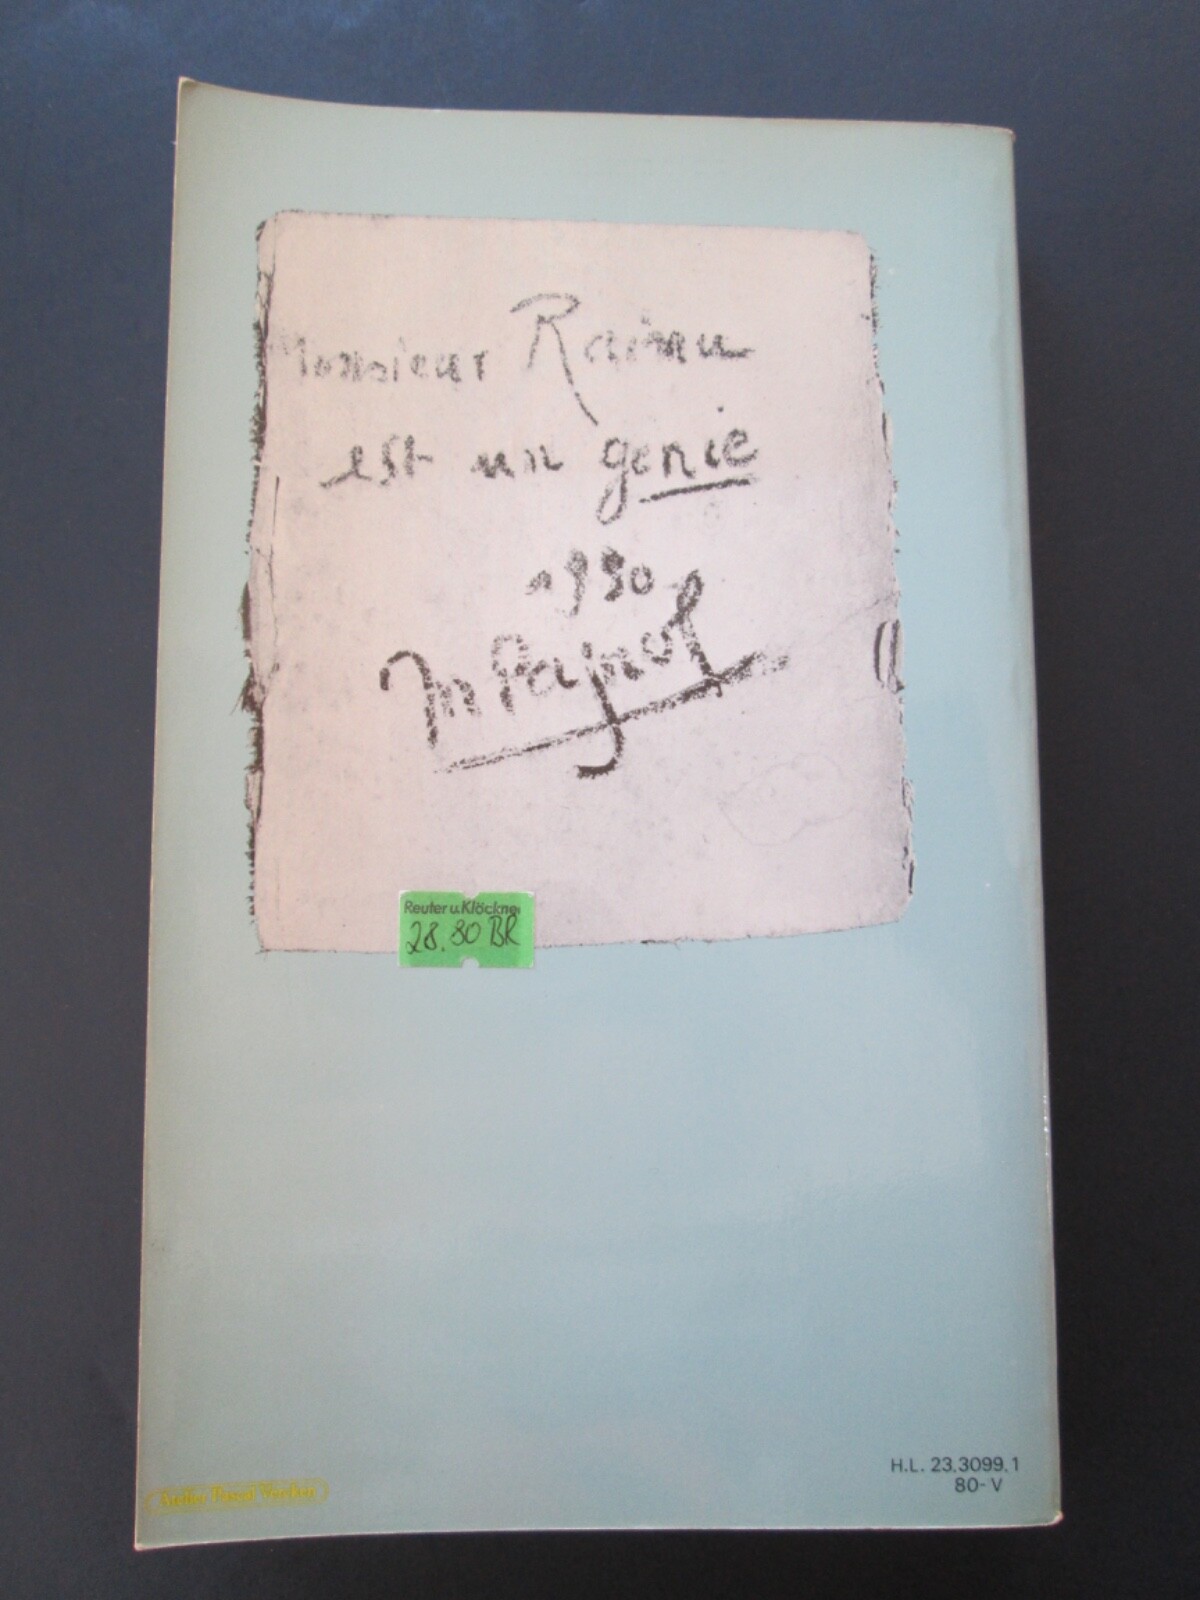 Monsieur Raimu
est un genie
1930
M Pagnol
Reuter u. Klöckner
28.80 BR
Atelier Pascal Vercken
H.L. 23.3099.1
80-V